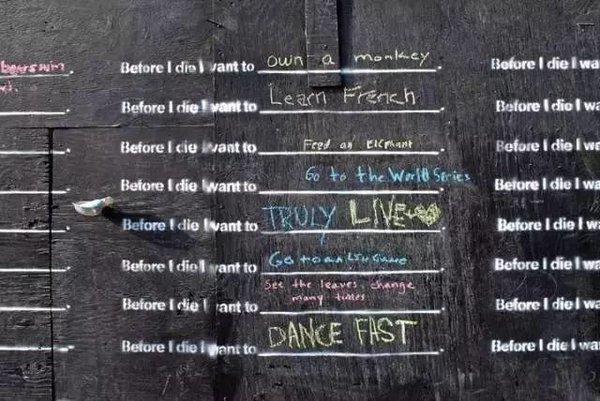 Before I die I want to own a monkey.
Before I die I want to Learn French.
Before I die I want to Feed an Elephant.
Before I die I want to Go to the World Series
Before I die I want to TRULY LIVE
Before I die I want to Go to an LSU Game
Before I die I want to See the leaves change
many times
Before I die I want to DANCE FAST.
Before I die I wa
Before I die I wa
Before I die I wa
Before I die I wa
Before I die I wa
Before I die I wa
Before I die I wa
Before I die I wa